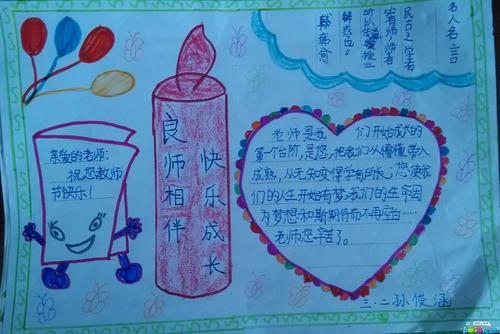 名人名言
民古之学者
必有师师者
所以传道授业
解惑也。
韩愈
亲爱的老师:
祝您教师
节快乐!
良师相伴
快乐成长
老师是我们开始成功的
第一个台阶,是您,把我们从懵懂带入
成熟,从无知变懂学有所长,您使我
们的人生开始有梦,我们的生命因
为梦想和期待而不再空白……
老师您辛苦了。
三.二孙俊涵